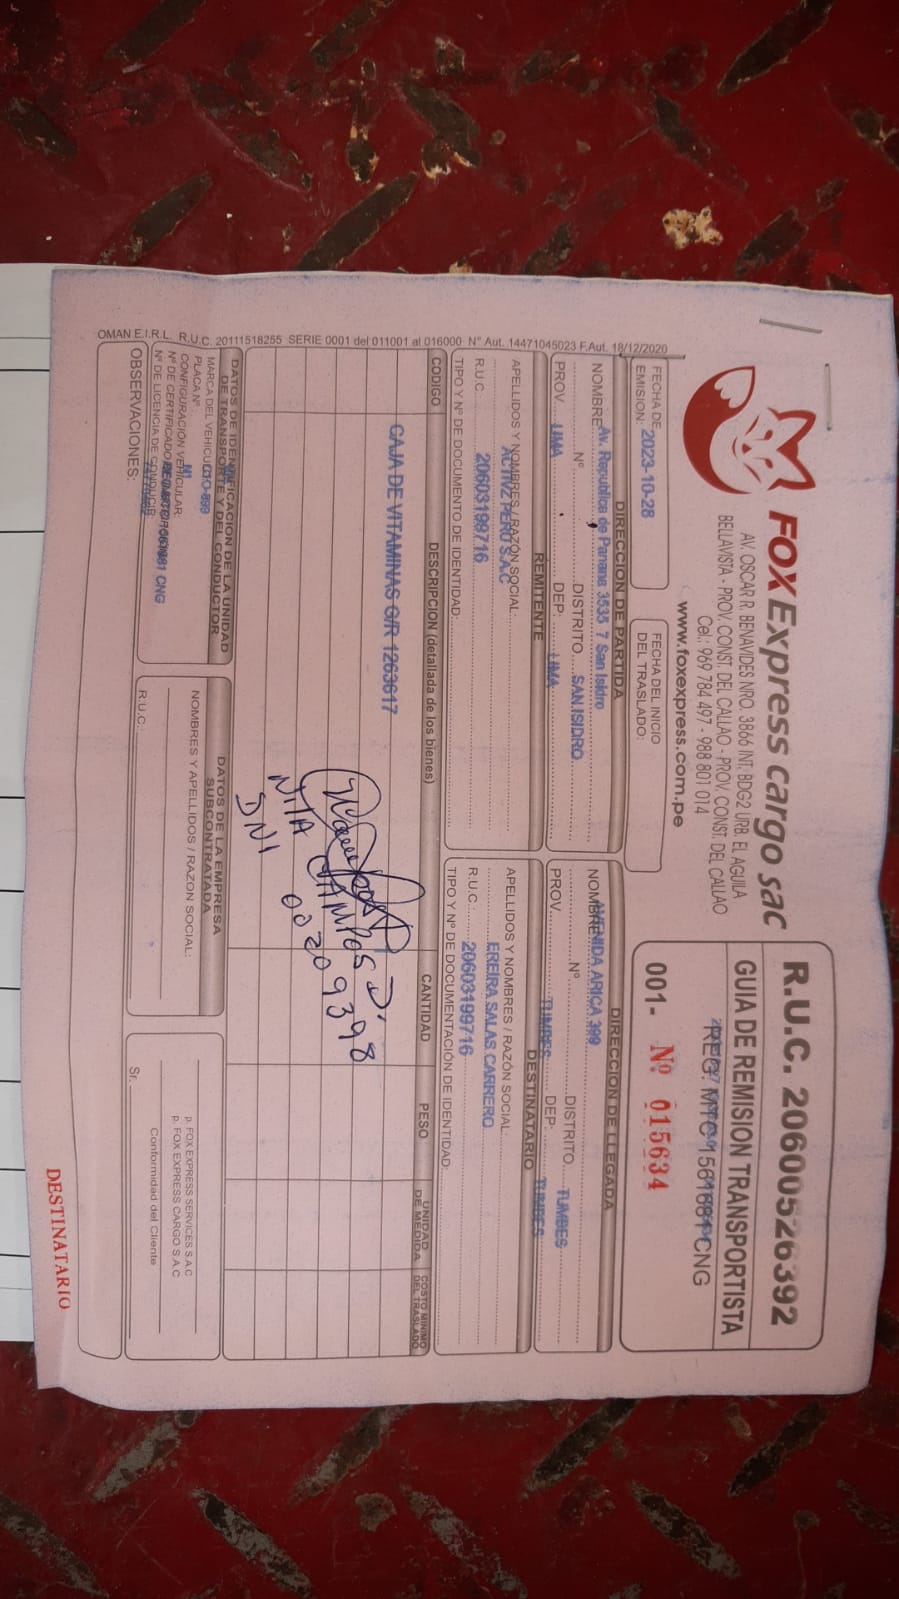 FOX Express cargo sac
AV. OSCAR R. BENAVIDES NRO. 3866 INT. BDG2 URB. EL AGUILA
BELLAVISTA - PROV. CONST. DEL CALLAO - PROV. CONST. DEL CALLAO
Cel.: 969 784 497 - 988 801 014
www.foxexpress.com.pe
R.U.C. 20600526392
GUIA DE REMISION TRANSPORTISTA
REG. MTC 1561681CNG
001- Nº 015634
FECHA DE EMISION: 2023-10-28
FECHA DEL INICIO DEL TRASLADO:
DIRECCION DE PARTIDA
NOMBRE Av. Republica de Panama 3535 7 San Isidro
Nº DISTRITO SAN ISIDRO
PROV. LIMA DEP: LIMA
DIRECCION DE LLEGADA
NOMBRE AVENIDA ARICA 399
Nº DISTRITO TUMBES
PROV. TUMBES DEP: TUMBES
REMITENTE
APELLIDOS Y NOMBRES, RAZÓN SOCIAL:
ACTIVZ PERU S.A.C
R.U.C. 20603199716
TIPO Y Nº DE DOCUMENTO DE IDENTIDAD:
DESTINATARIO
APELLIDOS Y NOMBRES / RAZÓN SOCIAL:
EREIRA SALAS CARRERO
R.U.C. 20603199716
TIPO Y Nº DE DOCUMENTACIÓN DE IDENTIDAD:
CODIGO DESCRIPCION (detallada de los bienes) CANTIDAD PESO UNIDAD DE MEDIDA COSTO MINIMO DEL TRASLADO
CAJA DE VITAMINAS G/R 1263617
NITA CAMPOS D.
DNI 00209398
DATOS DE IDENTIFICACION DE LA UNIDAD DE TRANSPORTE Y DEL CONDUCTOR
MARCA DEL VEHICULO
PLACA Nº
CONFIGURACIÓN VEHICULAR: N1
Nº DE CERTIFICADO
Nº DE LICENCIA DE CONDUCIR:
DATOS DE LA EMPRESA SUBCONTRATADA
NOMBRES Y APELLIDOS / RAZON SOCIAL:
R.U.C.
p. FOX EXPRESS SERVICES S.A.C
p. FOX EXPRESS CARGO S.A.C
Conformidad del Cliente
Sr.
OBSERVACIONES:
OMAN E.I.R.L. R.U.C. 20111518255 SERIE 0001 del 011001 al 016000 Nº Aut. 14471045023 F.Aut. 18/12/2020
DESTINATARIO